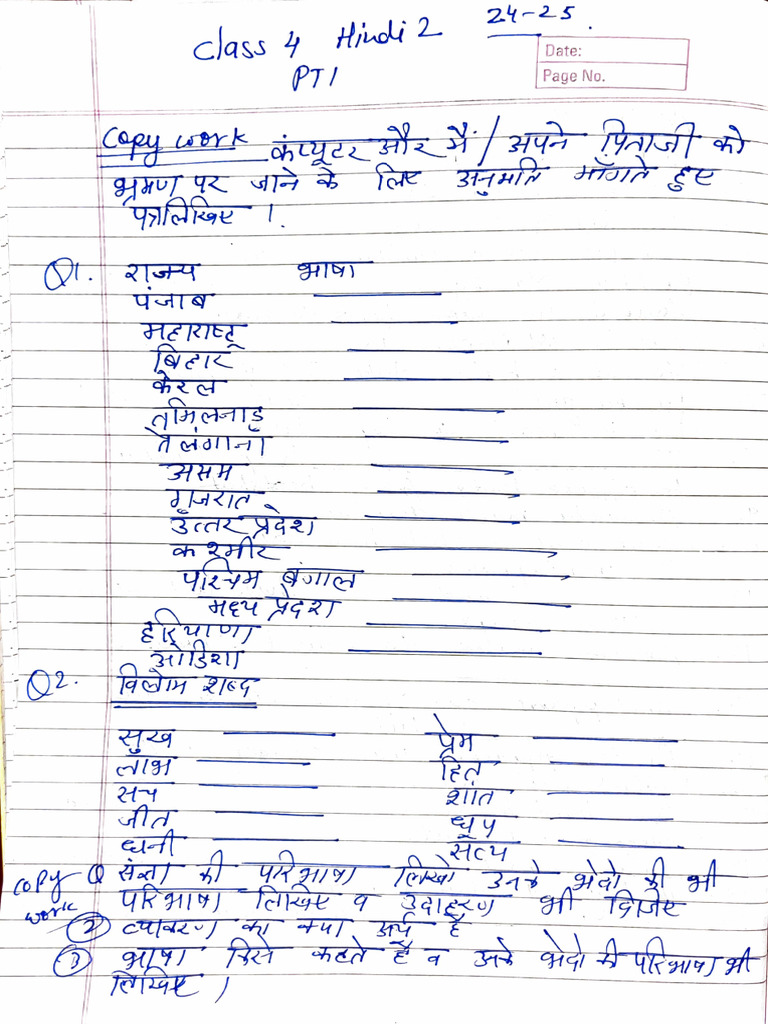 24-25.
Class 4 Hindi 2
PT1
Date:
Page No.
Copy work कंप्यूटर और मैं / अपने पिताजी को
भ्रमण पर जाने के लिए अनुमति माँगते हुए
पत्रलिखिए ।
Q1. राज्य भाषा
पंजाब
महाराष्ट्र
बिहार
केरल
तमिलनाडु
तेलंगाना
असम
गुजरात
उत्तर प्रदेश
कश्मीर
पश्चिम बंगाल
मध्य प्रदेश
हरियाणा
ओडिशा
Q2. विलोम शब्द
सुख प्रेम
लाभ हित
सच शांत
जीत धूप
धनी सत्य
copy Q संज्ञा की परिभाषा लिखो उनके भेदो की भी
work परिभाषा लिखिए व उदाहरण भी दिजिए
② व्याकरण का क्या अर्थ है
③ भाषा किसे कहते है व उसके भेदो की परिभाषा भी
लिखिए ।